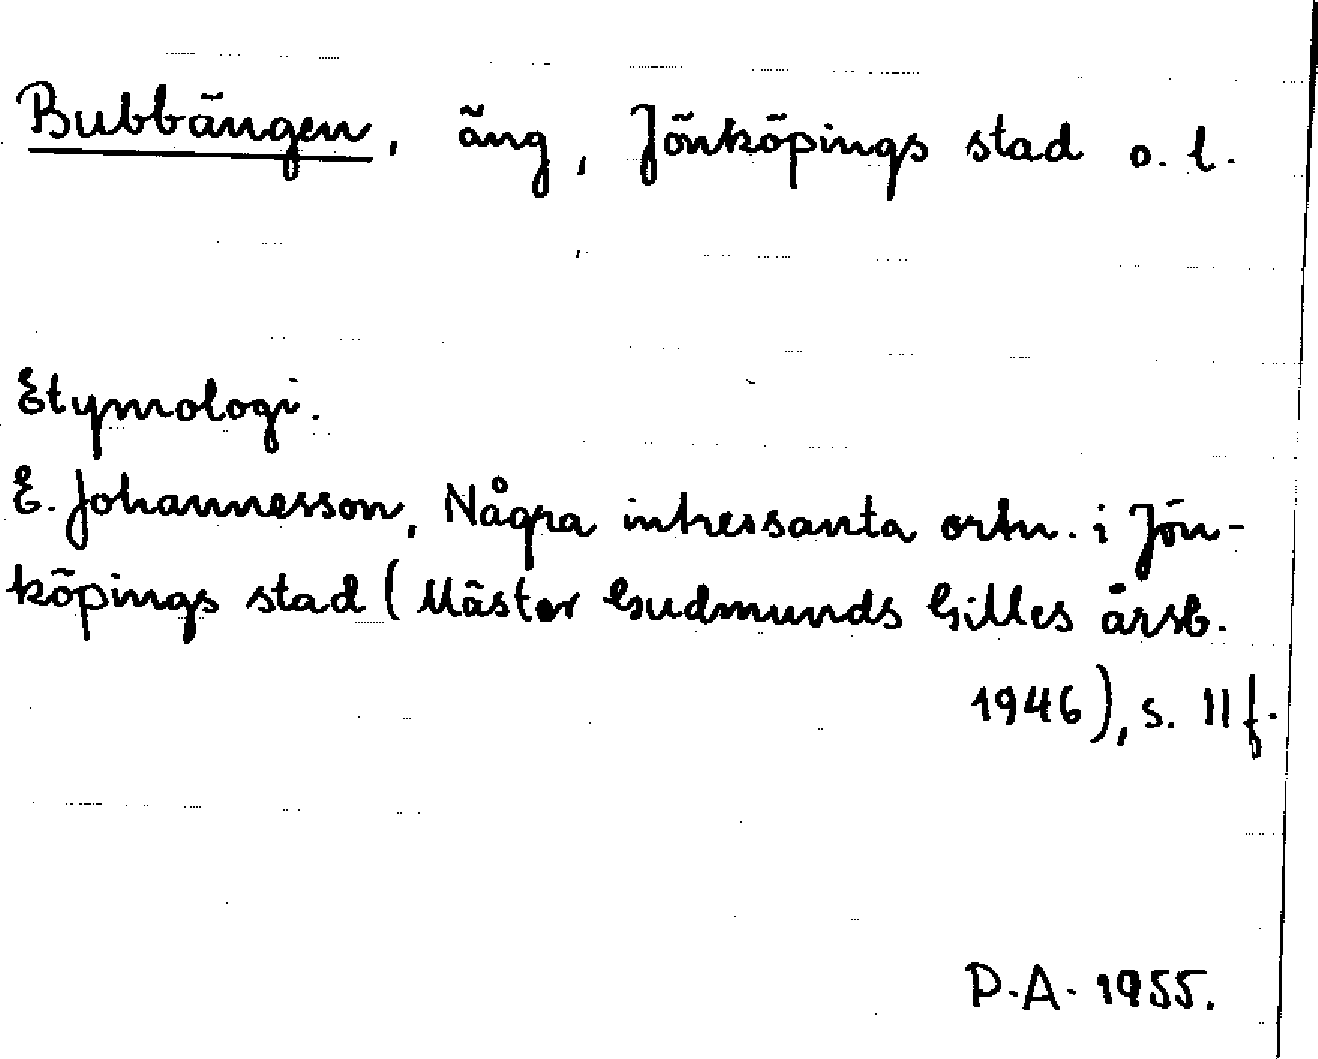 Bubbängen, äng, Jönköpings stad o. l.
Etymologi.
E. Johannesson, Några intressanta ortn. i Jön-
köpings stad (Mäster Gudmunds Gilles årsb.
1946), s. 11 f.
P.A. 1955.